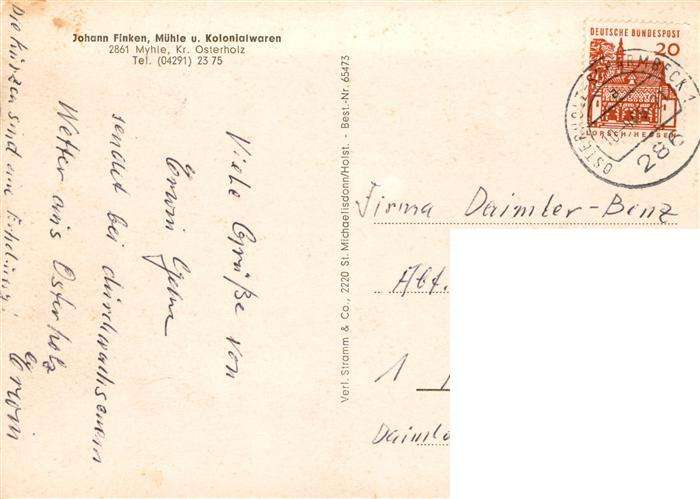 Johann Finken, Mühle u. Kolonialwaren
2861 Myhle, Kr. Osterholz
Tel. (04291) 23 75
Viele Grüße von
Erwin
sendet bei durchwachsenem
Wetter aus Osterholz
Erwin
Die kurzen sind eine Erholung!
Verl. Stramm & Co., 2220 St. Michaelisdonn/Holst. - Best.-Nr. 65473
DEUTSCHE BUNDESPOST
20
LORSCH/HESSEN
286
Firma Daimler-Benz
Abt.
1
Daimle